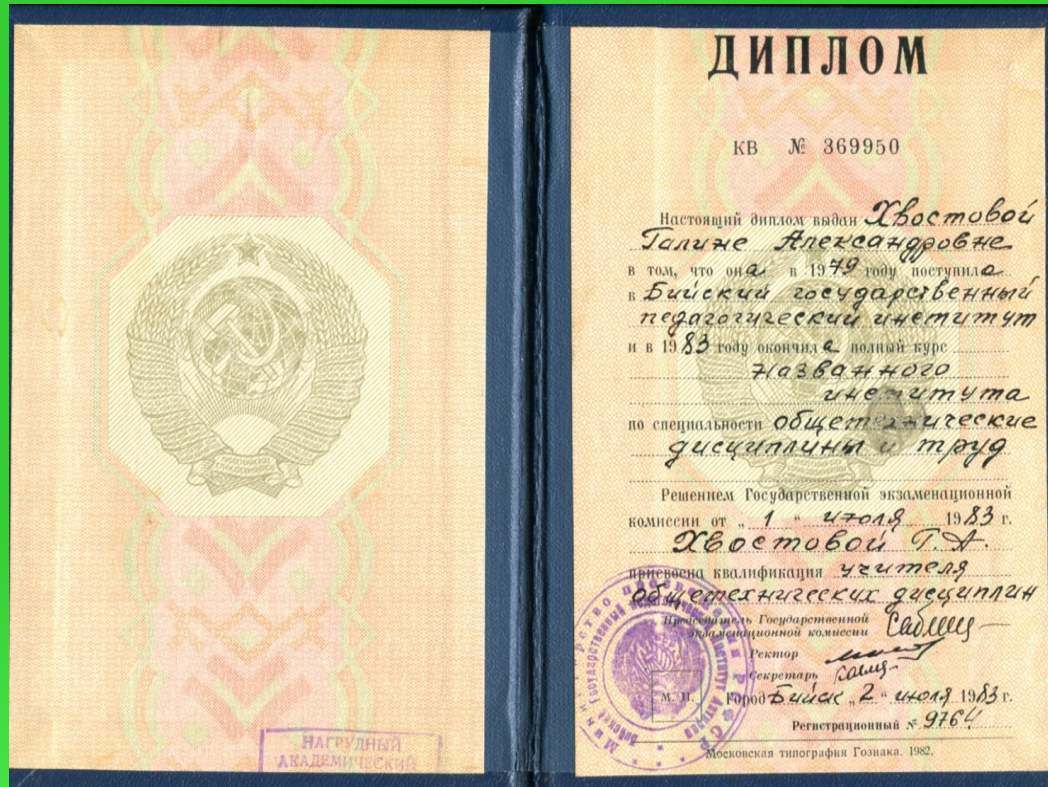 НАГРУДНЫЙ
АКАДЕМИЧЕСКИЙ
ДИПЛОМ
КВ № 369950
Настоящий диплом выдан Хвостовой
Галине Александровне
в том, что она в 1979 году поступила
в Бийский государственный
педагогический институт
и в 1983 году окончила полный курс
названного
института
по специальности общетехнические
дисциплины и труд
Решением Государственной экзаменационной
комиссии от „ 1 “ июля 1983 г.
Хвостовой Г. А.
присвоена квалификация учителя
общетехнических дисциплин
Председатель Государственной
экзаменационной комиссии
Ректор
Секретарь
М. П. Город Бийск „ 2 “ июля 1983 г.
Регистрационный № 9764
Московская типография Гознака. 1982.